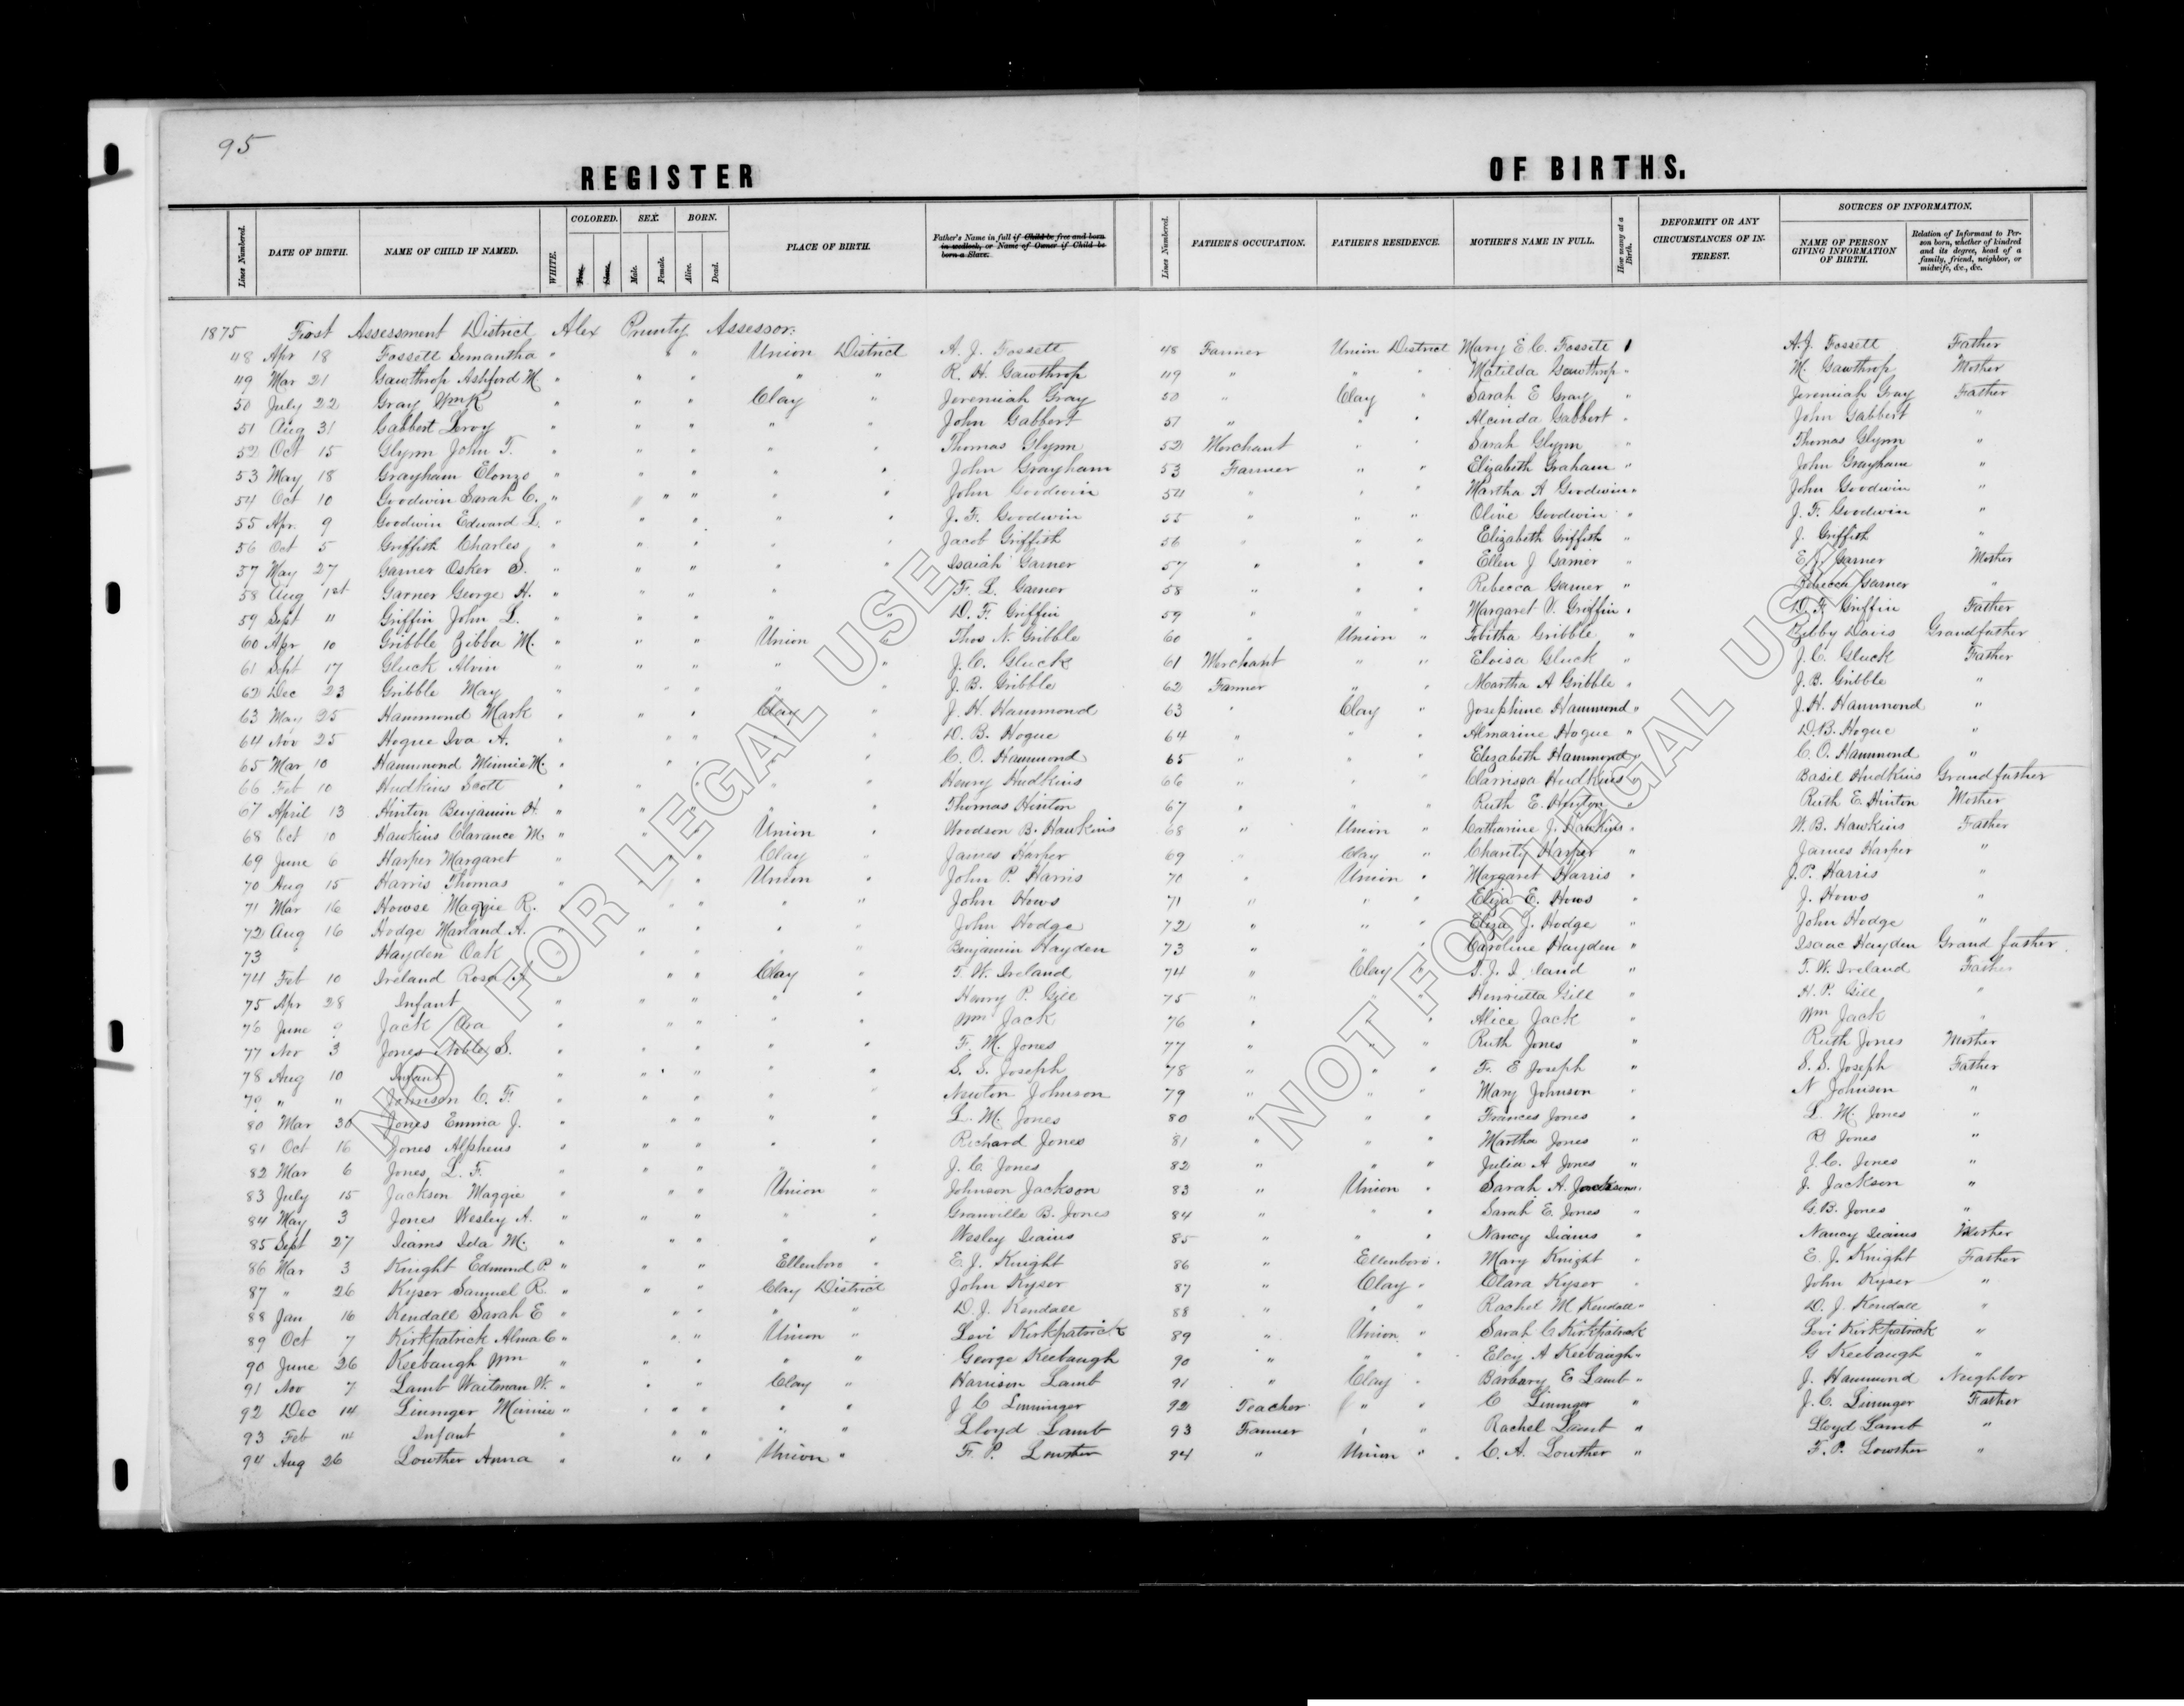 95
REGISTER OF BIRTHS.
Lines Numbered. DATE OF BIRTH. NAME OF CHILD IF NAMED. WHITE. COLORED. Free. Slave. SEX. Male. Female. BORN. Alive. Dead. PLACE OF BIRTH. Father's Name in full if Child be free and born in wedlock, or Name of Owner if Child be born a Slave. Lines Numbered. FATHER'S OCCUPATION. FATHER'S RESIDENCE. MOTHER'S NAME IN FULL. How many at a Birth. DEFORMITY OR ANY CIRCUMSTANCES OF INTEREST. SOURCES OF INFORMATION. NAME OF PERSON GIVING INFORMATION OF BIRTH. Relation of Informant to Person born, whether of kindred and its degree, head of a family, friend, neighbor, or midwife, &c., &c.
1875 First Assessment District Alex Prunty Assessor.
48 Apr 18 Fossett Semantha " " " Union District A. J. Fossett 48 Farmer Union District Mary E. C. Fossett 1 A. J. Fossett Father
49 Mar 21 Gawthrop Ashford M. " " " " " R. H. Gawthrop 49 " " " Matilda Gawthrop " M. Gawthrop Mother
50 July 22 Gray Wm K " " " Clay " Jeremiah Gray 50 " Clay " Sarah E Gray " Jeremiah Gray Father
51 Aug 31 Gabbert Leroy " " " " " John Gabbert 51 " " " Alcinda Gabbert " John Gabbert "
52 Oct 15 Glynn John T. " " " " " Thomas Glynn 52 Merchant " " Sarah Glynn " Thomas Glynn "
53 May 18 Grayham Elonzo " " " " " John Grayham 53 Farmer " " Elizabeth Graham " John Grayham "
54 Oct 10 Goodwin Sarah C. " " " " " John Goodwin 54 " " " Martha A Goodwin " John Goodwin "
55 Apr. 9 Goodwin Edward L. " " " " " J. F. Goodwin 55 " " " Olive Goodwin " J. F. Goodwin "
56 Oct 5 Griffith Charles " " " " " Jacob Griffith 56 " " " Elizabeth Griffith " J. Griffith "
57 May 27 Garner Osker S. " " " " " Isaiah Garner 57 " " " Ellen J Garner " E. J. Garner Mother
58 Aug 1st Garner George H. " " " " " F. L. Garner 58 " " " Rebecca Garner " Rebecca Garner "
59 Sept " Griffin John L. " " " " " D. F. Griffin 59 " " " Margaret V. Griffin " D. F. Griffin Father
60 Apr 10 Gribble Zibba M. " " " Union " Thos N. Gribble 60 " Union " Tobitha Gribble " Davis Grandfather
61 Sept 17 Gluck Alvin " " " " " J. C. Gluck 61 Merchant " " Eloisa Gluck " J. C. Gluck Father
62 Dec 23 Gribble May " " " " " J. B. Gribble 62 Farmer " " Martha A Gribble " J. B. Gribble "
63 May 25 Hammond Mark " " " Clay " J. H. Hammond 63 " Clay " Josephine Hammond " J. H. Hammond "
64 Nov 25 Hogue Iva A. " " " " " D. B. Hogue 64 " " " Almarine Hogue " D. B. Hogue "
65 Mar 10 Hammond Minnie M. " " " " " C. O. Hammond 65 " " " Elizabeth Hammond " C. O. Hammond "
66 Feb 10 Hudkins Scott " " " " " Henry Hudkins 66 " " " Clarrissa Hudkins " Basil Hudkins Grandfather
67 April 13 Hinton Benjamin H. " " " " " Thomas Hinton 67 " " " Ruth E. Hinton " Ruth E. Hinton Mother
68 Oct 10 Hawkins Clarance M. " " " Union " Woodson B. Hawkins 68 " Union " Catharine J. Hawkins " W. B. Hawkins Father
69 June 6 Harper Margaret " " " Clay " James Harper 69 " Clay " Charity Harper " James Harper "
70 Aug 15 Harris Thomas " " " Union " John P. Harris 70 " Union " Margaret Harris " J. P. Harris "
71 Mar 16 Howse Maggie R. " " " " " John Hows 71 " " " Eliza E. Hows " J. Hows "
72 Aug 16 Hodge Marland A. " " " " " John Hodge 72 " " " Eliza J. Hodge " John Hodge "
73 " Hayden Oak " " " " " Benjamin Hayden 73 " " " Caroline Hayden " Isaac Hayden Grand father
74 Feb 10 Ireland Rosa A " " " Clay " T. W. Ireland 74 " Clay " T. J. I land " T. W. Ireland Father
75 Apr 28 Infant " " " " " Henry P. Gill 75 " " " Henrietta Gill " H. P. Gill "
76 June 9 Jack Ora " " " " " Wm Jack 76 " " " Alice Jack " Wm Jack "
77 Nov 3 Jones Noble S. " " " " " F. M. Jones 77 " " " Ruth Jones " Ruth Jones Mother
78 Aug 10 Infant " " " " " S. S. Joseph 78 " " " F. E Joseph " S. S. Joseph Father
79 " " Johnson C. F. " " " " " Newton Johnson 79 " " " Mary Johnson " N Johnson "
80 Mar 30 Jones Emma J. " " " " " L. M. Jones 80 " " " Frances Jones " L. M. Jones "
81 Oct 16 Jones Alpheus " " " " " Richard Jones 81 " " " Martha Jones " R Jones "
82 Mar 6 Jones L. F. " " " " " J. C. Jones 82 " " " Julia A Jones " J. C. Jones "
83 July 15 Jackson Maggie " " " Union " Johnson Jackson 83 " Union " Sarah A. Jackson " J. Jackson "
84 May 3 Jones Wesley A. " " " " " Granville B. Jones 84 " " " Sarah E. Jones " G. B. Jones "
85 Sept 27 Iiams Ida M. " " " " " Wesley Iiams 85 " " " Nancy Iiams " Nancy Iiams Mother
86 Mar 3 Knight Edmond P. " " " Ellenboro " E. J. Knight 86 " Ellenboro " Mary Knight " E. J. Knight Father
87 " 26 Kyser Samuel R. " " " Clay District John Kyser 87 " Clay " Clara Kyser " John Kyser "
88 Jan 16 Kendall Sarah E " " " " " D. J. Kendall 88 " " " Rachel M Kendall " D. J. Kendall "
89 Oct 7 Kirkpatrick Alma C " " " Union " Levi Kirkpatrick 89 " Union " Sarah C Kirkpatrick Levi Kirkpatrick "
90 June 26 Keebaugh Wm " " " " " George Keebaugh 90 " " " Elcy A Keebaugh " G Keebaugh "
91 Nov 7 Lamb Waitman W. " " " Clay " Harrison Lamb 91 " Clay " Barbary E Lamb " J. Hammond Neighbor
92 Dec 14 Lininger Minnie " " " " " J C Linninger 92 Teacher " " C Lininger " J. C. Lininger Father
93 Feb " Infant " " " " " Lloyd Lamb 93 Farmer " " Rachel Lamb " Lloyd Lamb "
94 Aug 26 Lowther Anna " " " Union " F. P. Lowther 94 " Union " C. A. Lowther " F. P. Lowther "
NOT FOR LEGAL USE
NOT FOR LEGAL USE